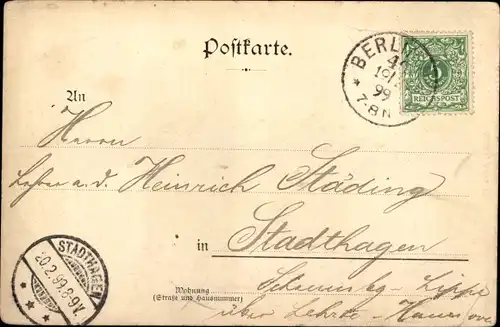 Postkarte.
BERLIN
99
7-8N
5
REICHSPOST
An
Herrn
Lehrer a. d. Heinrich Städing
in Stadthagen
STADTHAGEN
20.2.99.8-9V.
Wohnung
(Straße und Hausnummer)
Schaumbg-Lippe
über Lehrte-Hannover